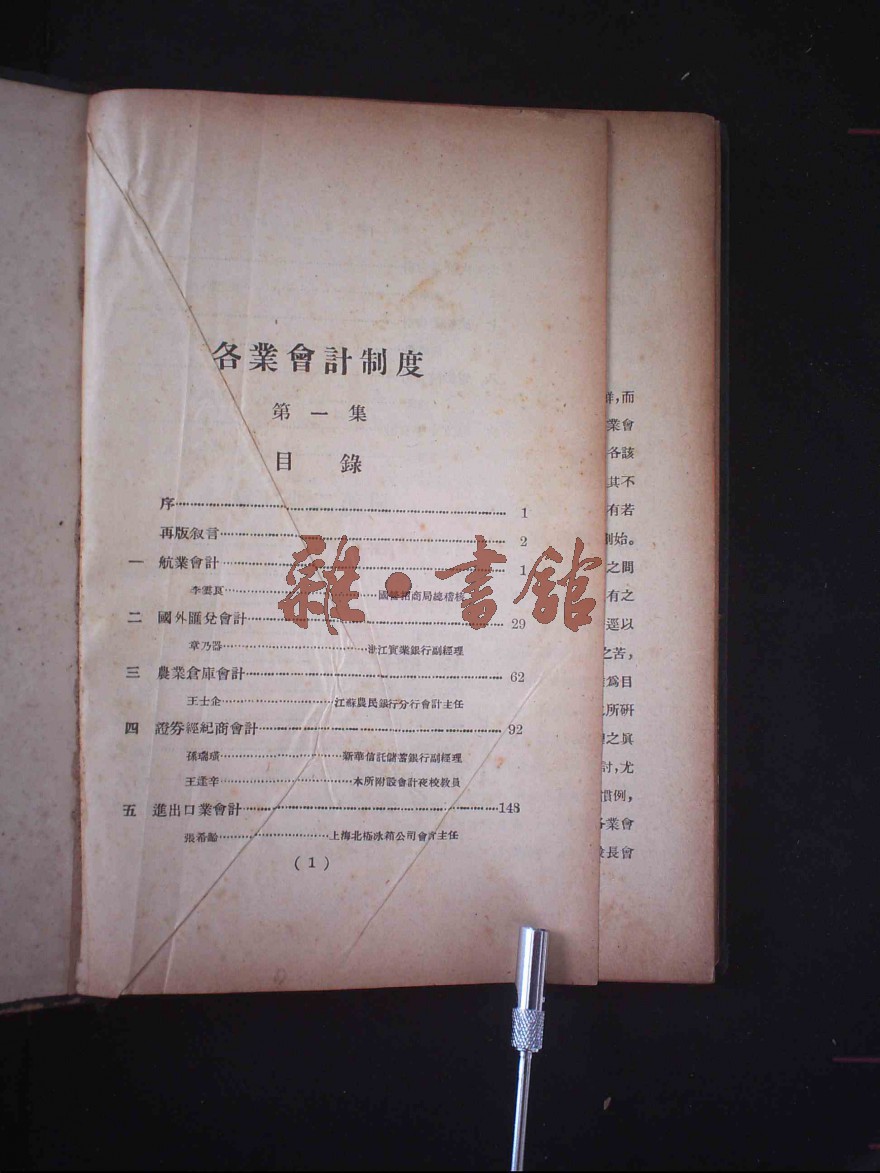 各業會計制度
第一集
目錄
序 1
再版叙言 2
一 航業會計 1
李雲良 國營招商局總稽核
二 國外匯兌會計 29
章乃器 浙江實業銀行副經理
三 農業倉庫會計 62
王士企 江蘇農民銀行分行會計主任
四 證券經紀商會計 92
孫瑞璜 新華信託儲蓄銀行副經理
王逢辛 本所附設會計夜校教員
五 進出口業會計 143
張希 上海北極冰箱公司會計主任
(1)
雜·書館
,而
業會
各該
其不
有若
始。
之間
有之
逕以
之苦,
爲目
所研
之眞
討,尤
慣例,
各業會
長會